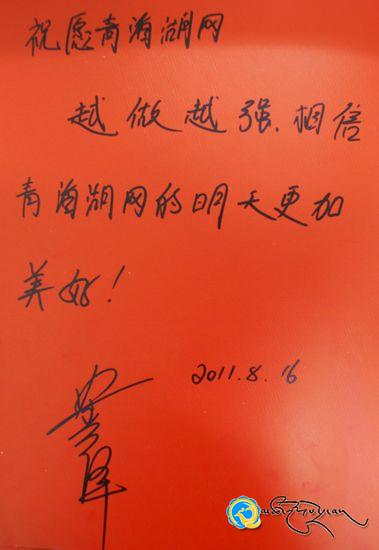 祝愿青海湖网
越做越强.相信
青海湖网的明天更加
美好!
2011.8.16